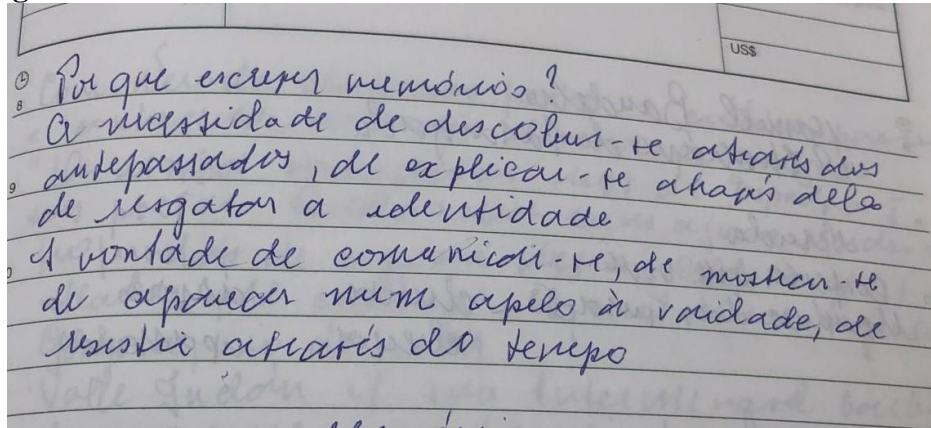 US$
8 Por que escrever memórias?
A necessidade de descobrir-se através dos
9 antepassados, de explicar-se através deles
de resgatar a identidade
A vontade de comunicar-se, de mostrar-se
de aparecer num apelo à vaidade, de
resistir através do tempo